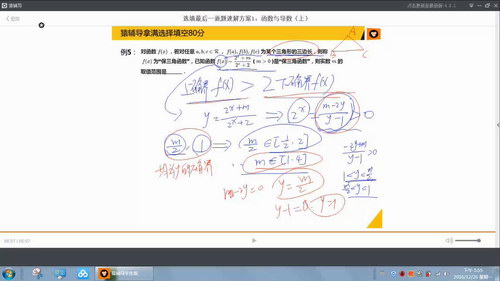 猿辅导
猿辅导拿满选择填空80分
选填最后一题速解方案1：函数与导数（上）
例5： 对函数 f(x)，若对任意 a,b,c∈R，f(a),f(b),f(c) 为某个三角形的三边长，则称
f(x) 为“保三角函数”，已知函数 f(x)= (m>0) 是“保三角函数”，则实数 m 的
取值范围是
A
B
C
上确界 f(x) > 2 下确界 f(x)
y = (2^x+m)/(2^x+2) ⇒ 2^x = (m-2y)/(y-1) > 0
m/2, 1 ⇒ m/2 ∈ [1/2, 2]
m ∈ [1, 4]
(-2y+m)/(y-1) > 0
1<y<m/2
m/2<y<1
m-2y=0 y=m/2
y-1=0 y=1